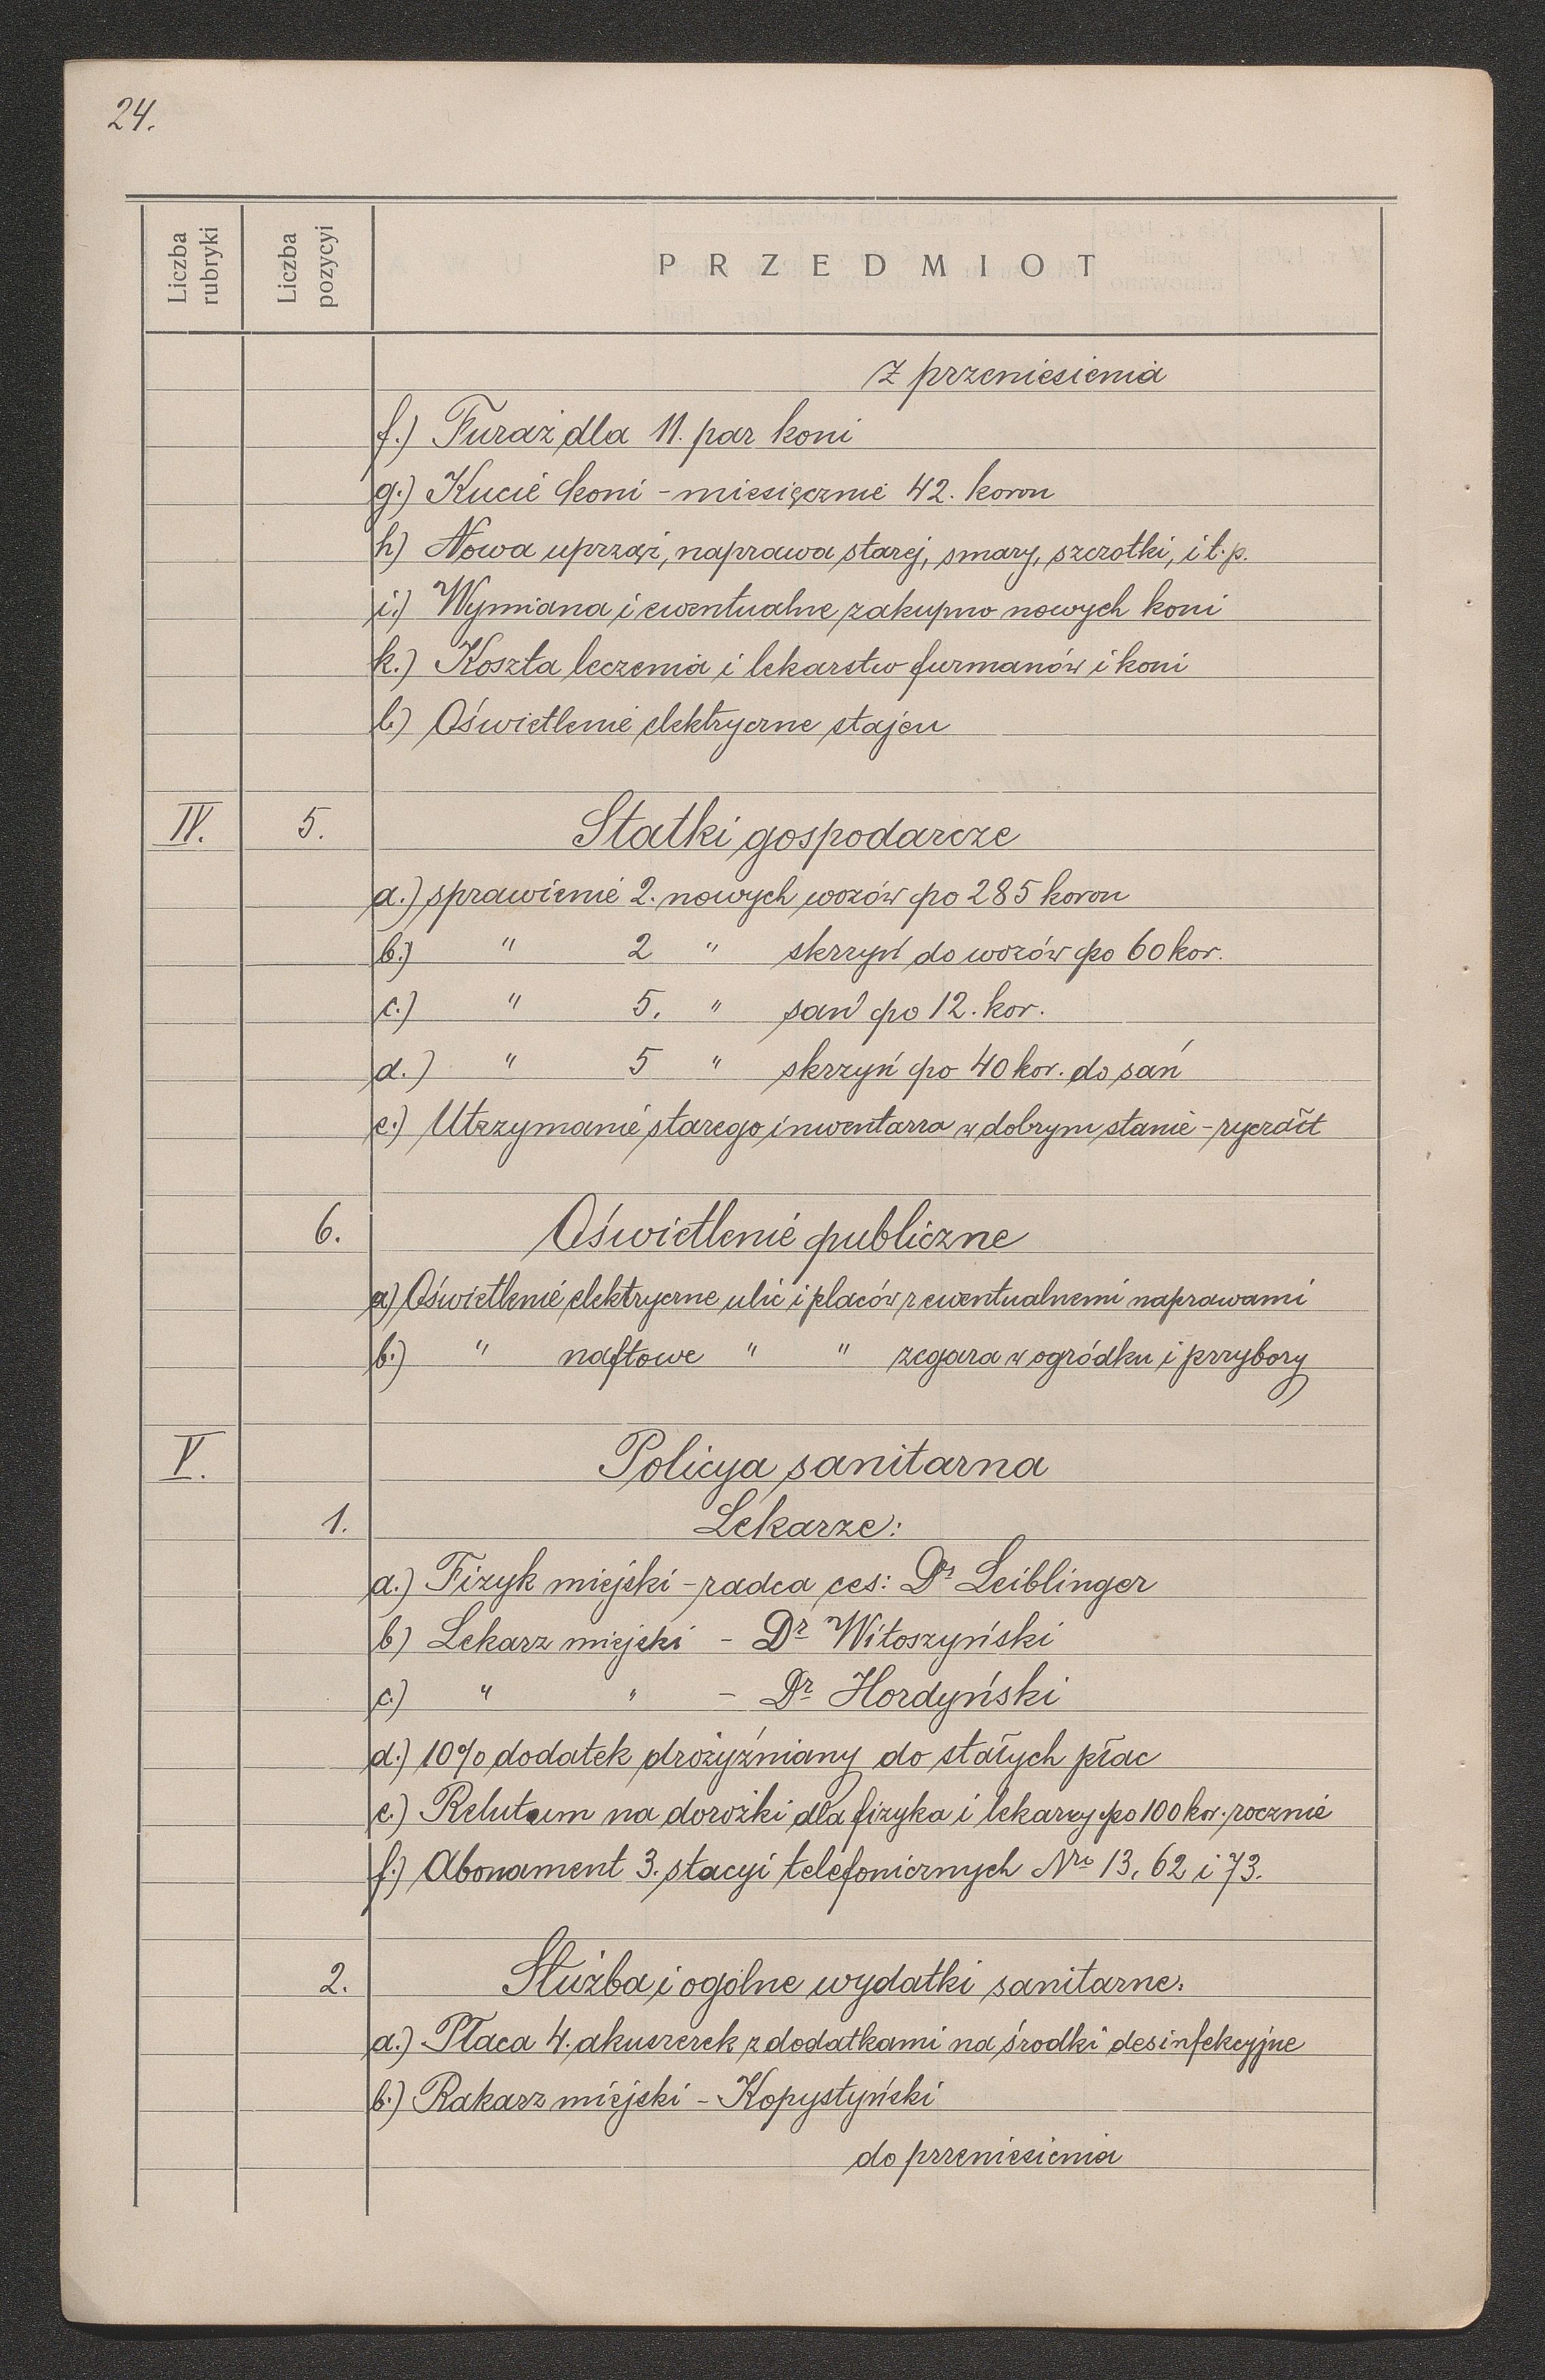 24.
Liczba rubryki
Liczba pozycyi
PRZEDMIOT
z przeniesienia
f.) Furaż dla 11. par koni
g.) Kucie koni - miesięcznie 42. koron
h) Nowa uprząż, naprawa starej, smary, szczotki, i t. p.
i.) Wymiana i ewentualne zakupno nowych koni
k.) Koszta leczenia i lekarstw furmanów i koni
l.) Oświetlenie elektryczne stajen
IV. 5. Statki gospodarcze
a.) sprawienie 2. nowych wozów po 285 koron
b.) " 2 " skrzyń do wozów po 60 kor.
c.) " 5. " sań po 12. kor.
d.) " 5 " skrzyń po 40 kor. do sań
e.) Utrzymanie starego inwentarza w dobrym stanie - ryczałt
6. Oświetlenie publiczne
a) Oświetlenie elektryczne ulic i placów z ewentualnemi naprawami
b.) " naftowe " " zegara w ogródku i przybory
V. Policya sanitarna
1. Lekarze:
a.) Fizyk miejski - radca ces: Dr Leiblinger
b) Lekarz miejski - Dr Witoszyński
c.) " " - Dr Hordyński
d.) 10% dodatek drożyźniany do stałych płac
e.) Relutum na dorożki dla fizyka i lekarzy po 100 kor. rocznie
f.) Abonament 3. stacyi telefonicznych Nro 13, 62 i 73.
2. Służba i ogólne wydatki sanitarne.
a.) Płaca 4. akuszerek z dodatkami na środki desinfekcyjne
b.) Rakarz miejski - Kopystyński
do przeniesienia